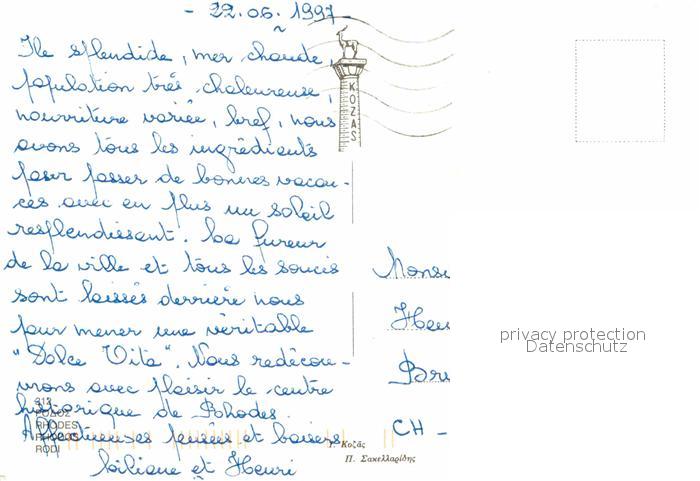 - 22.06.1997 -
Ile splendide, mer chaude,
population très chaleureuse,
nourriture variée, bref, nous
avons tous les ingrédients
pour passer de bonnes vacan-
ces avec en plus un soleil
resplendissant. La fureur
de la ville et tous les soucis
sont laissés derrière nous
pour mener une véritable
"Dolce Vita". Nous redécou-
vrons avec plaisir le centre
historique de Rhodes.
Affectueuses pensées et baisers
Liliane et Henri
313
ΡΟΔΟΣ
RHODES
RHODOS
RODI
KOZAS
Γ. Κοζάς
Π. Σακελλαρίδης
Monsi
Hen
Bru
CH -
privacy protection
Datenschutz